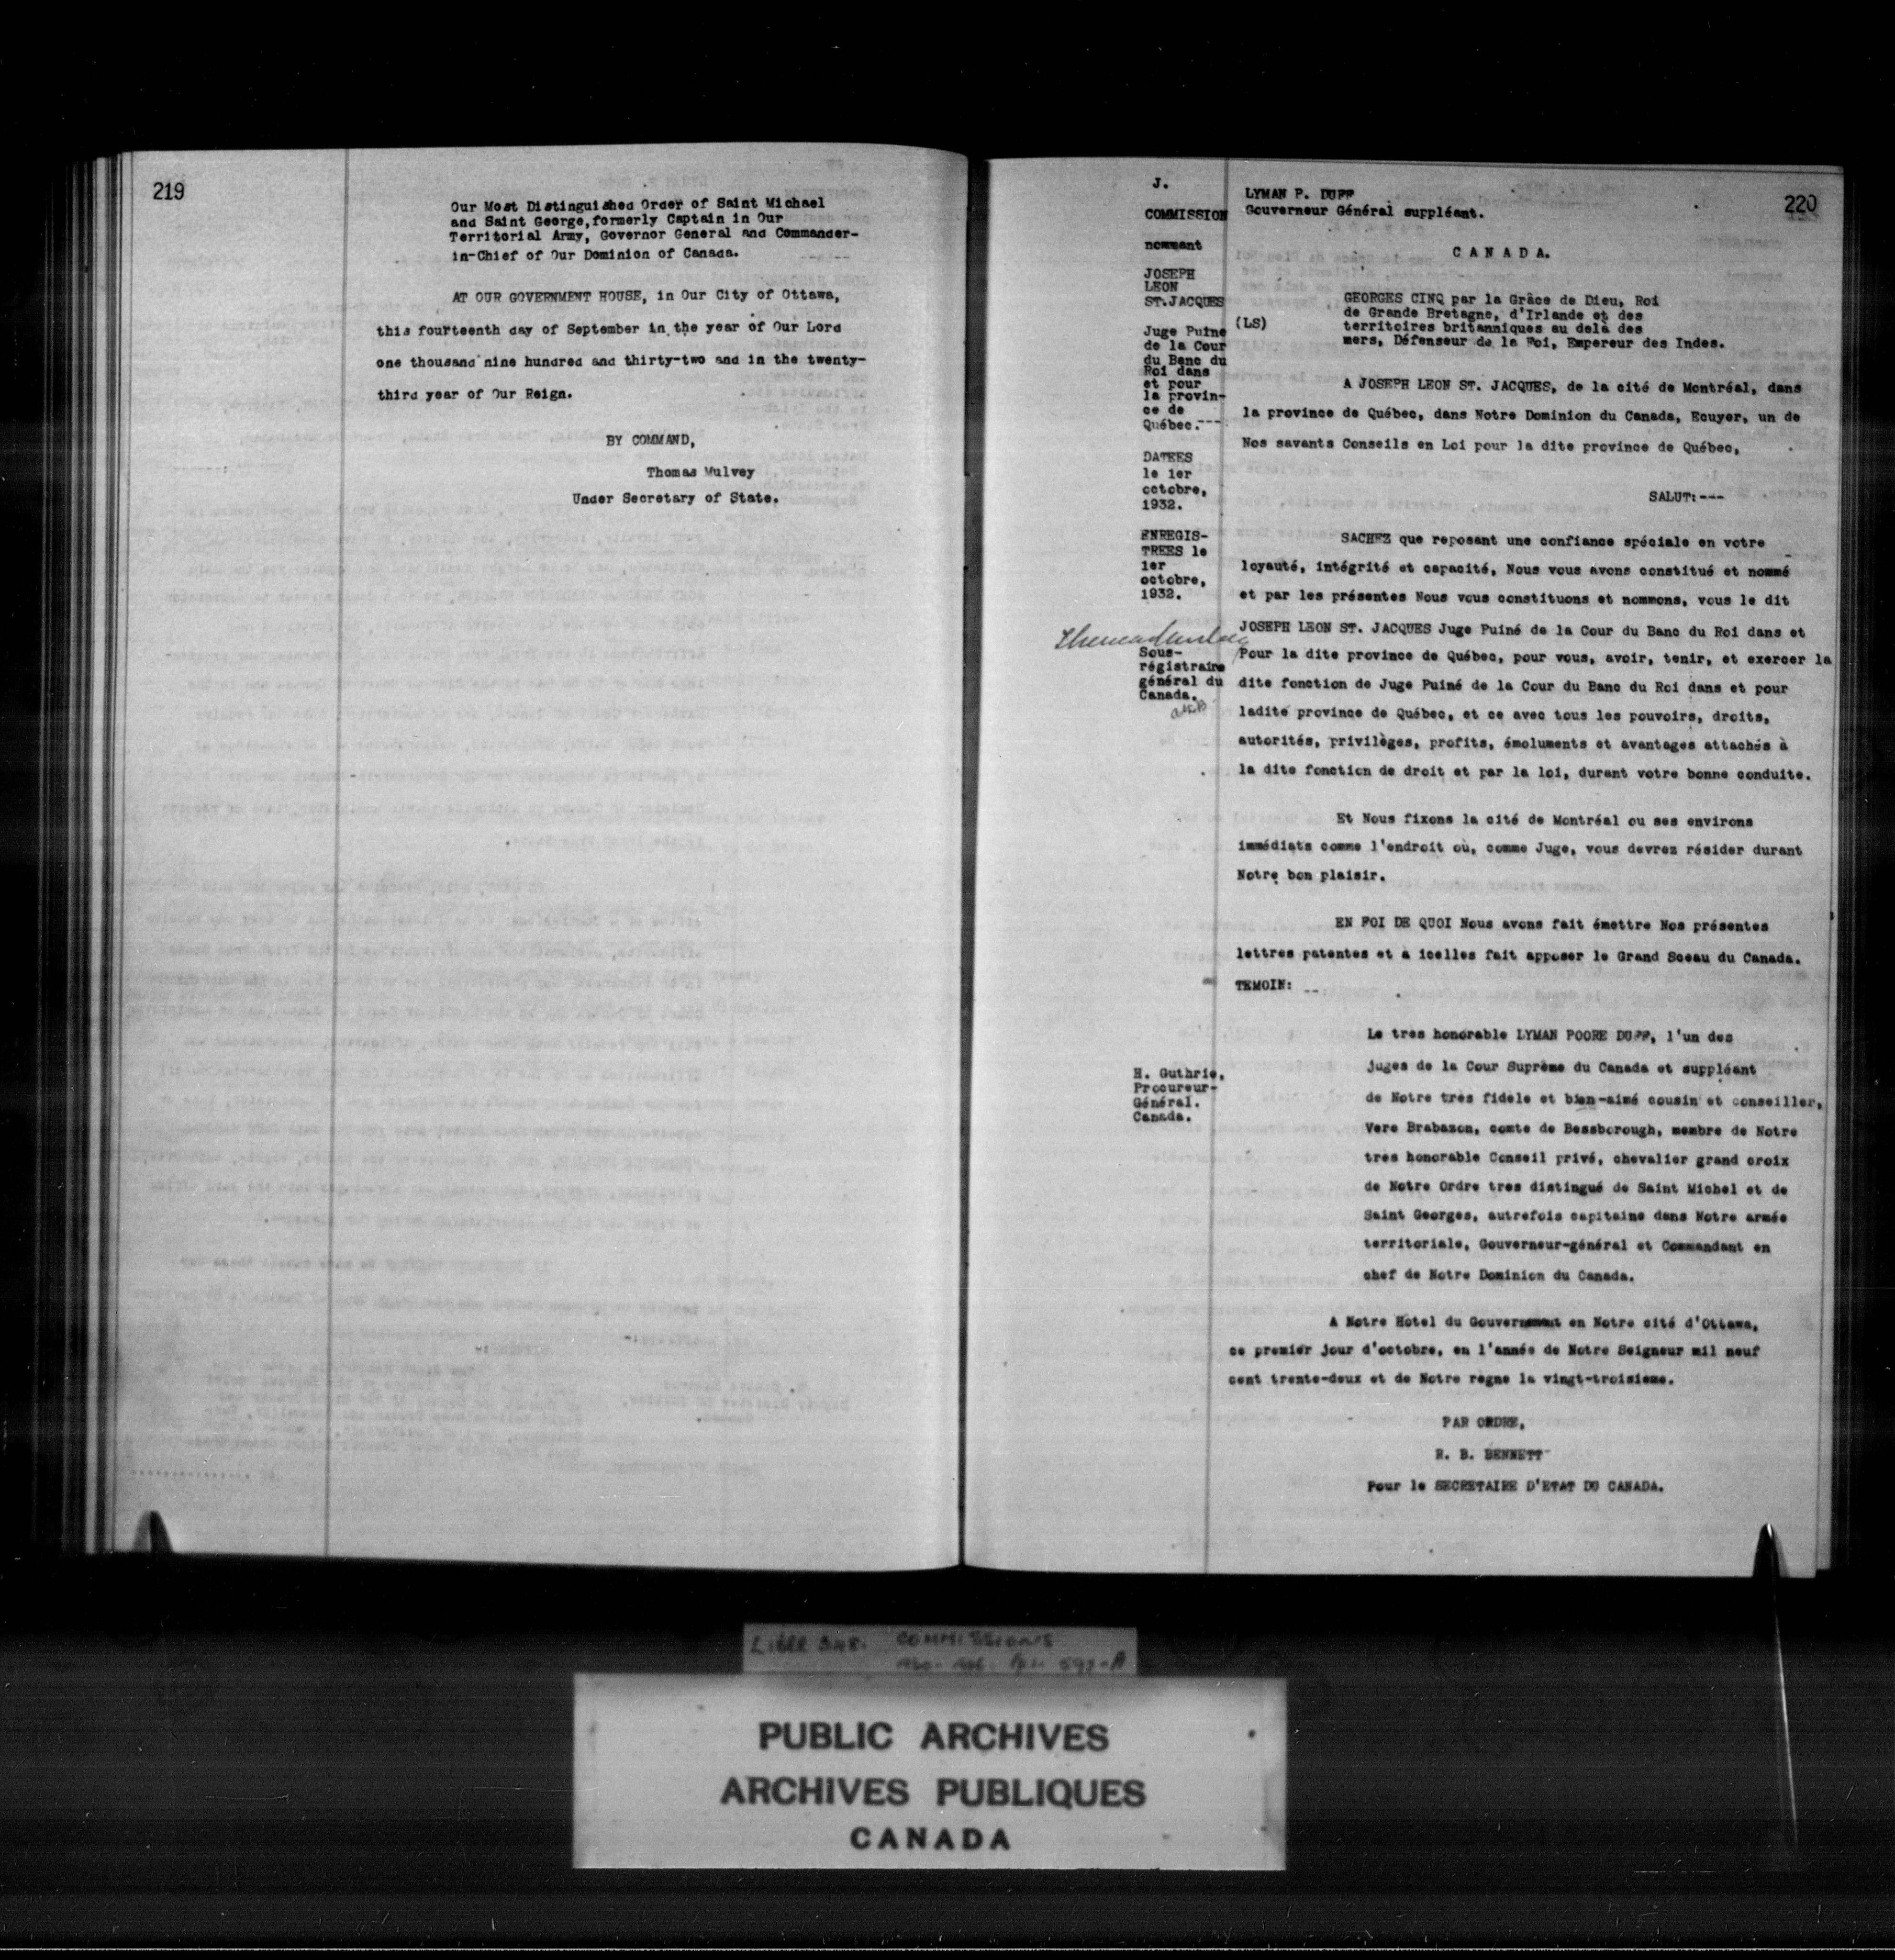 219
Our Most Distinguished Order of Saint Michael
and Saint George,formerly Captain in Our
Territorial Army, Governor General and Commander-
in-Chief of Our Dominion of Canada.
AT OUR GOVERNMENT HOUSE, in Our City of Ottawa,
this fourteenth day of September in the year of Our Lord
one thousand nine hundred and thirty-two and in the twenty-
third year of Our Reign.
BY COMMAND,
Thomas Mulvey
Under Secretary of State.
220
J.
COMMISSION
nommant
JOSEPH
LEON
ST.JACQUES
Juge Puine
de la Cour
du Banc du
Roi dans
et pour
la provin-
ce de
Québec.---
DATEES
le 1er
octobre,
1932.
ENREGIS-
TREES le
1er
octobre,
1932.
Sous-
régistraire
général du
Canada.
H. Guthrie,
Procureur-
Général.
Canada.
LYMAN P. DUFF
Gouverneur Général suppléant.
C A N A D A.
(LS)
GEORGES CINQ par la Grâce de Dieu, Roi
de Grande Bretagne, d'Irlande et des
territoires britanniques au delà des
mers, Défenseur de la Foi, Empereur des Indes.
A JOSEPH LEON ST. JACQUES, de la cité de Montréal, dans
la province de Québec, dans Notre Dominion du Canada, Ecuyer, un de
Nos savants Conseils en Loi pour la dite province de Québec,
SALUT:---
SACHEZ que reposant une confiance spéciale en votre
loyauté, intégrité et capacité, Nous vous avons constitué et nommé
et par les présentes Nous vous constituons et nommons, vous le dit
JOSEPH LEON ST. JACQUES Juge Puiné de la Cour du Banc du Roi dans et
Pour la dite province de Québec, pour vous, avoir, tenir, et exercer la
dite fonction de Juge Puiné de la Cour du Banc du Roi dans et pour
ladite province de Québec, et ce avec tous les pouvoirs, droits,
autorités, privilèges, profits, émoluments et avantages attachés à
la dite fonction de droit et par la loi, durant votre bonne conduite.
Et Nous fixons la cité de Montréal ou ses environs
immédiats comme l'endroit où, comme Juge, vous devrez résider durant
Notre bon plaisir.
EN FOI DE QUOI Nous avons fait émettre Nos présentes
lettres patentes et à icelles fait apposer le Grand Sceau du Canada.
TEMOIN: --
Le tres honorable LYMAN POORE DUFF, l'un des
juges de la Cour Suprème du Canada et suppléant
de Notre très fidele et bien-aimé cousin et conseiller,
Vere Brabazon, comte de Bessborough, membre de Notre
tres honorable Conseil privé, chevalier grand croix
de Notre Ordre tres distingué de Saint Michel et de
Saint Georges, autrefois capitaine dans Notre armée
territoriale, Gouverneur-général et Commandant en
chef de Notre Dominion du Canada.
A Notre Hotel du Gouvernement en Notre cité d'Ottawa,
ce premier jour d'octobre, en l'année de Notre Seigneur mil neuf
cent trente-deux et de Notre regne la vingt-troisieme.
PAR ORDRE,
R. B. BENNETT
Pour le SECRETAIRE D'ETAT DU CANADA.
LIBER 348. COMMISSIONS
PUBLIC ARCHIVES
ARCHIVES PUBLIQUES
CANADA